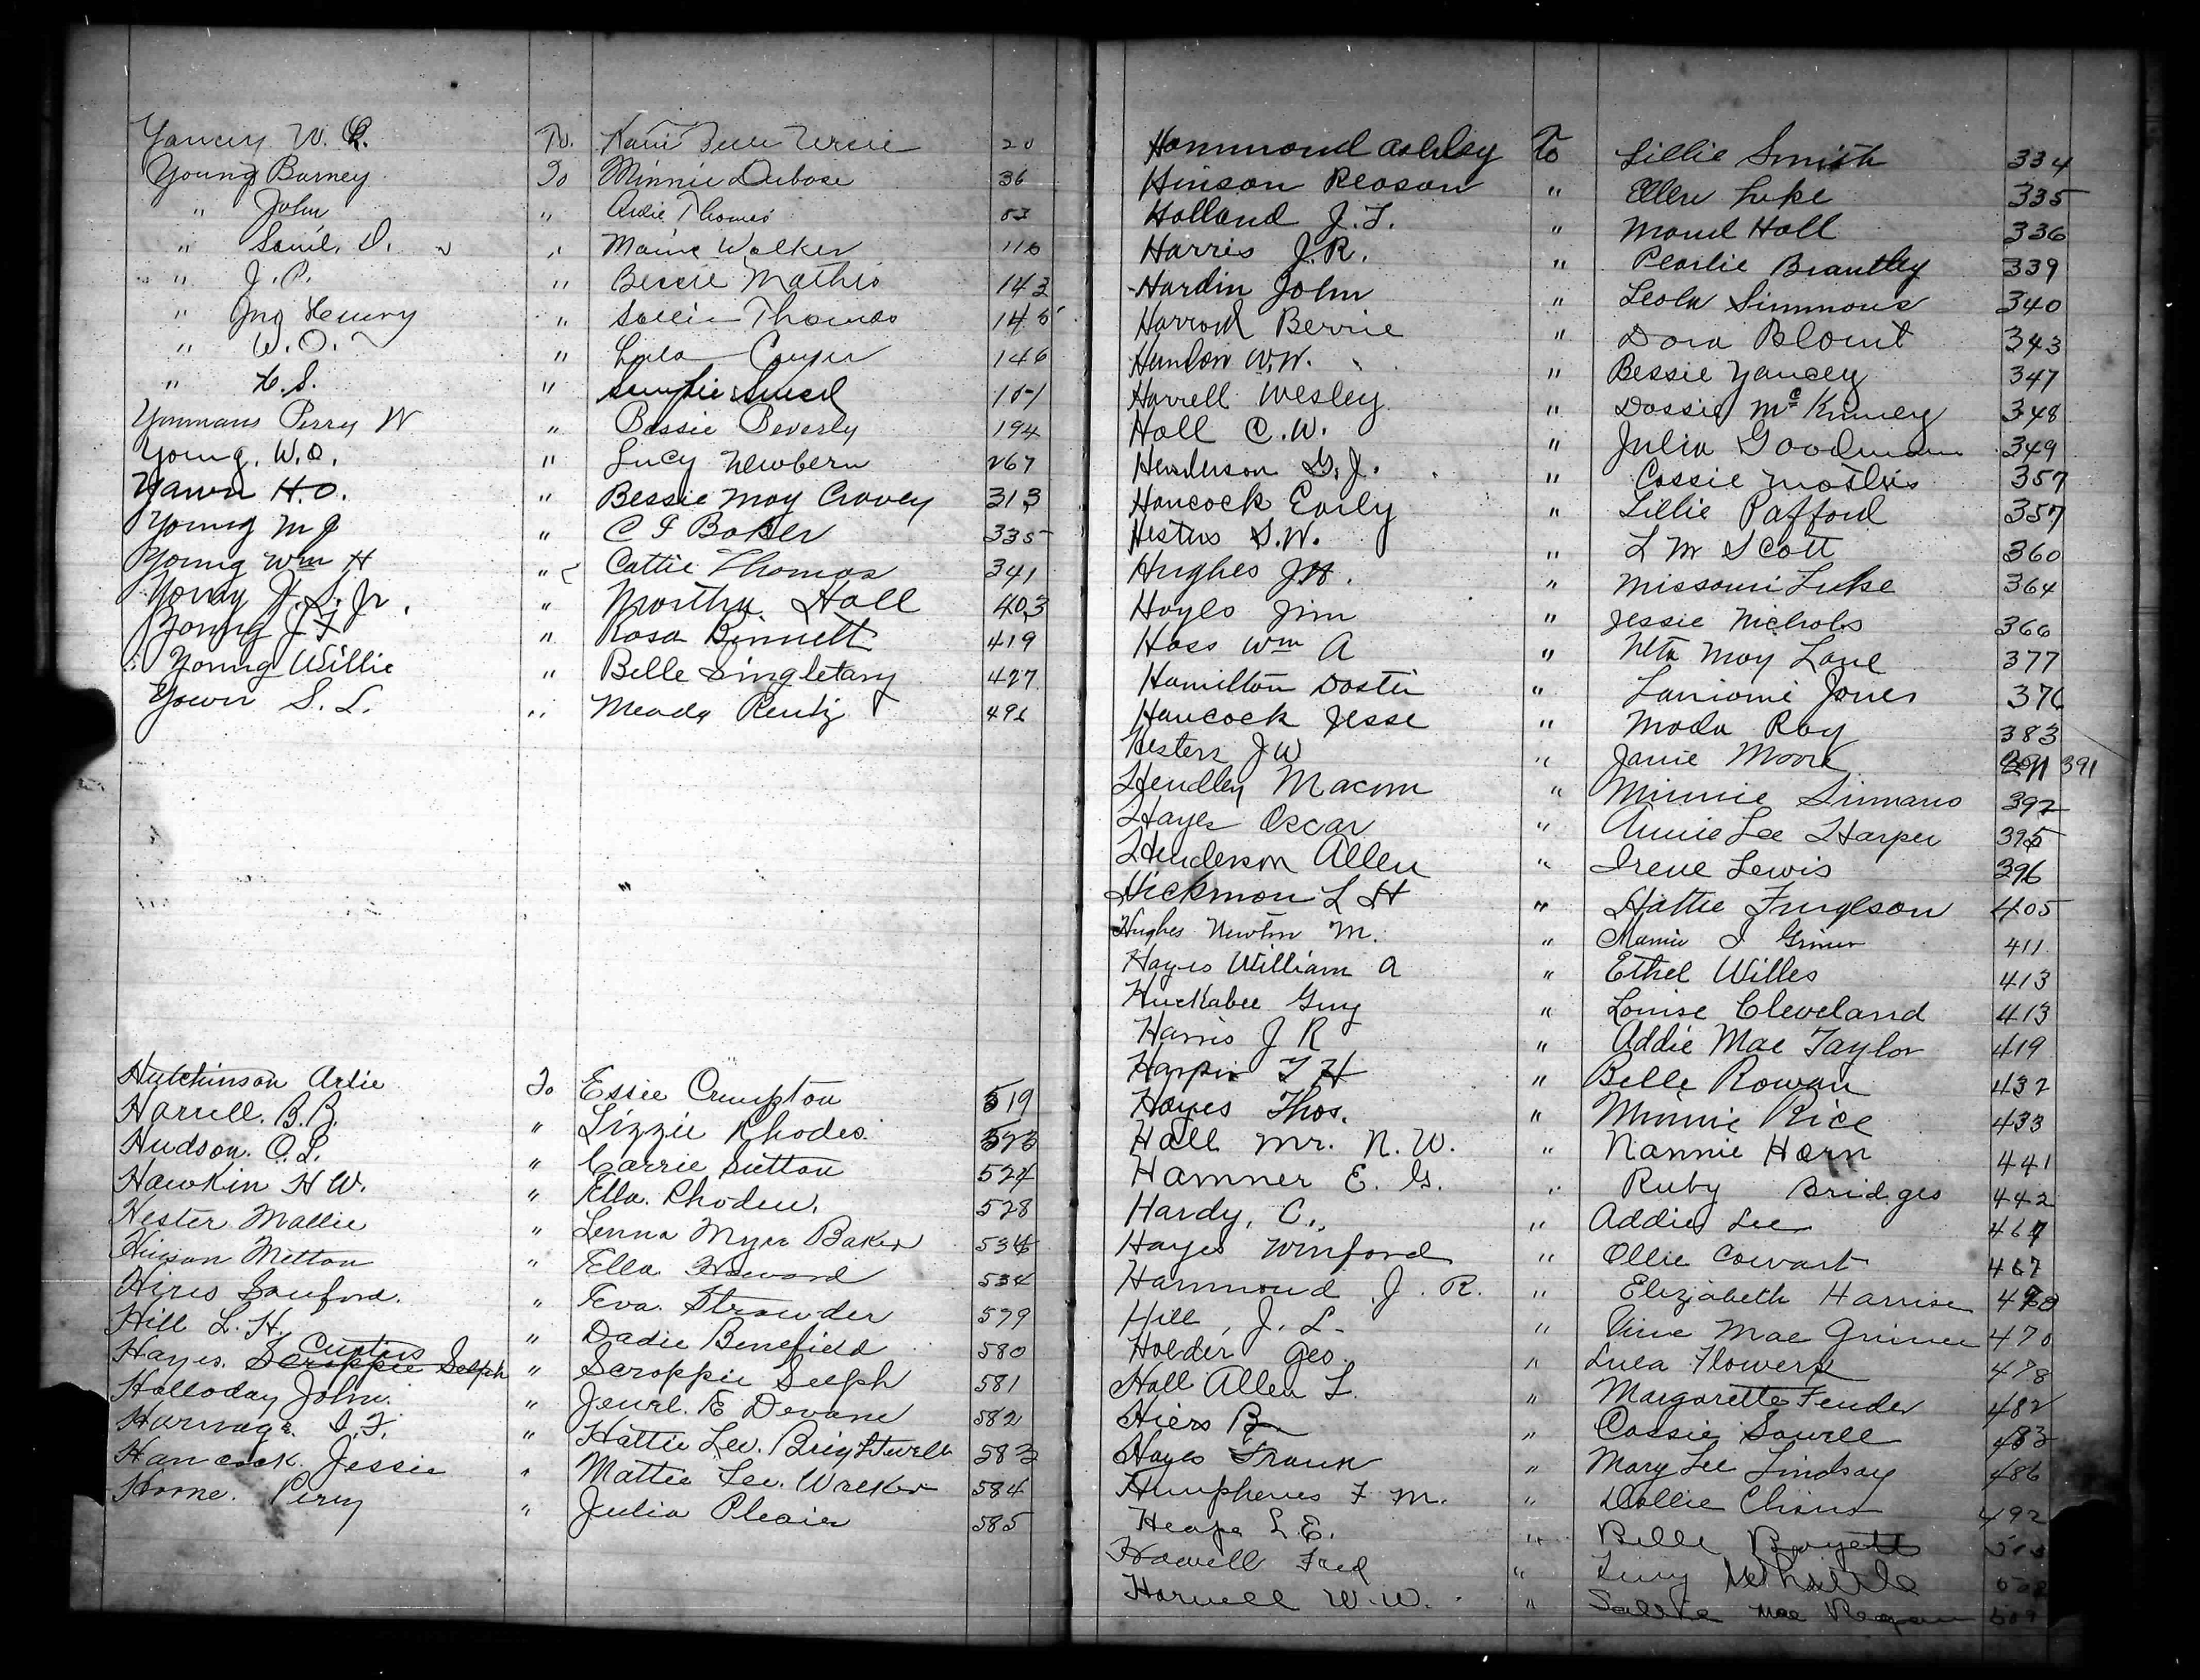 Yancey W. R. To 20
Young Barney To Minnie Dubose 36
" John " Ardie Thomas
" Saml. D. " Mamie Walker 110
" J. P. " Bessie Mathis 143
" Jno Henry " Sallie Thomas 145
" W. O. " Lula Conyer 146
" H. S. "
Yoummans Perry W " Bessie Beverly 194
Young, W. O. " Lucy Newbern 267
Yawn H. O. " Bessie May Cravey 313
Young M J " C F Baker 335
Young Wm H " Cattie Thomas 341
Young J. S. Jr. " Martha Hall 403
Young J F " Rosa Binnett 419
Young Willie " Belle Singletary 427
Yawn S. L. " Meady Rentz 496
Hutchinson Artie To Essie Crumpton 519
Harrell. B. B. " Lizzie Rhodes. 523
Hudson. O. L. " Carrie Sutton 524
Hawkin H W. " Ella. Rhoden. 528
Hester Mallie " Lenna Myra Baker 534
Hinson Milton " Ella Howard 534
Hires Sanford. " Eva. Strowder 579
Hill L. H. " Dadie Benefield 580
Hayes. Scroppie Selph Curtis " Scroppie Selph 581
Holloday John. " Jewel. E Devane 582
Harnage. I. F. " Hattie Lee. Brightwell 583
Hancock. Jessie " Mattie Lee. Walker 584
Horne. Perry " Julia 585
Hammond Ashley To Lillie Smith 334
Hinson Reason " Ellen Luke 335
Holland J. T. " Maud Hall 336
Harris J. R. " Pearlie Brantley 339
Hardin John " Leola Simmons 340
Harrod Berrie " Dora Blount 343
W. W. " Bessie Yancey 347
Harrell Wesley " Dossie McKinney 348
Hall C. W. " Julia Goodman 349
Henderson G. J. " Cassie Mathis 357
Hancock Early " Lillie Pafford 357
Hesters S. W. " L M Scott 360
Hughes J H. " Missouri Luke 364
Hayes Jim " Jessie Nichols 366
Hass Wm A " Neta May Lane 377
Hamilton Doster " Jones 376
Hancock Jesse " Moda Ray 383
Hesters J W " Janie Moore 391 391
Hendley Macom " Minnie Simmans 392
Hayes Oscar " Annie Lee Harper 395
Henderson Allen " Irene Lewis 396
Hickman L H " Hattie Furgeson 405
Hughes Newton M. " Mamie J Griner 411
Hayes William A " Ethel Willes 413
Huckabee Guy " Louise Cleveland 413
Harris J R " Addie Mae Taylor 419
Harper T H " Belle Rowan 432
Hayes Thos. " Minnie Rice 433
Hall Mr. N. W. " Nannie Horn 441
Hamner E. G. " Ruby Bridges 442
Hardy, C., " Addie Lee 467
Hayes Winford " Ollie Cowart 467
Hammond J. R. " Elizabeth Harrison 470
Hill, J. L. " Mae Griner 470
Holder Geo. " Lula Flowers 478
Hall Allen L. " Margarette Fender 482
Hiers B " Cassie Sowell 483
Hayes Frank " Mary Lee Lindsay 486
Humpheries F. M. " Dollie Chism 492
Heape L. E. " Belle Boyett 503
Howell Fred "
Harnell W. W. " Sallie Mae 509